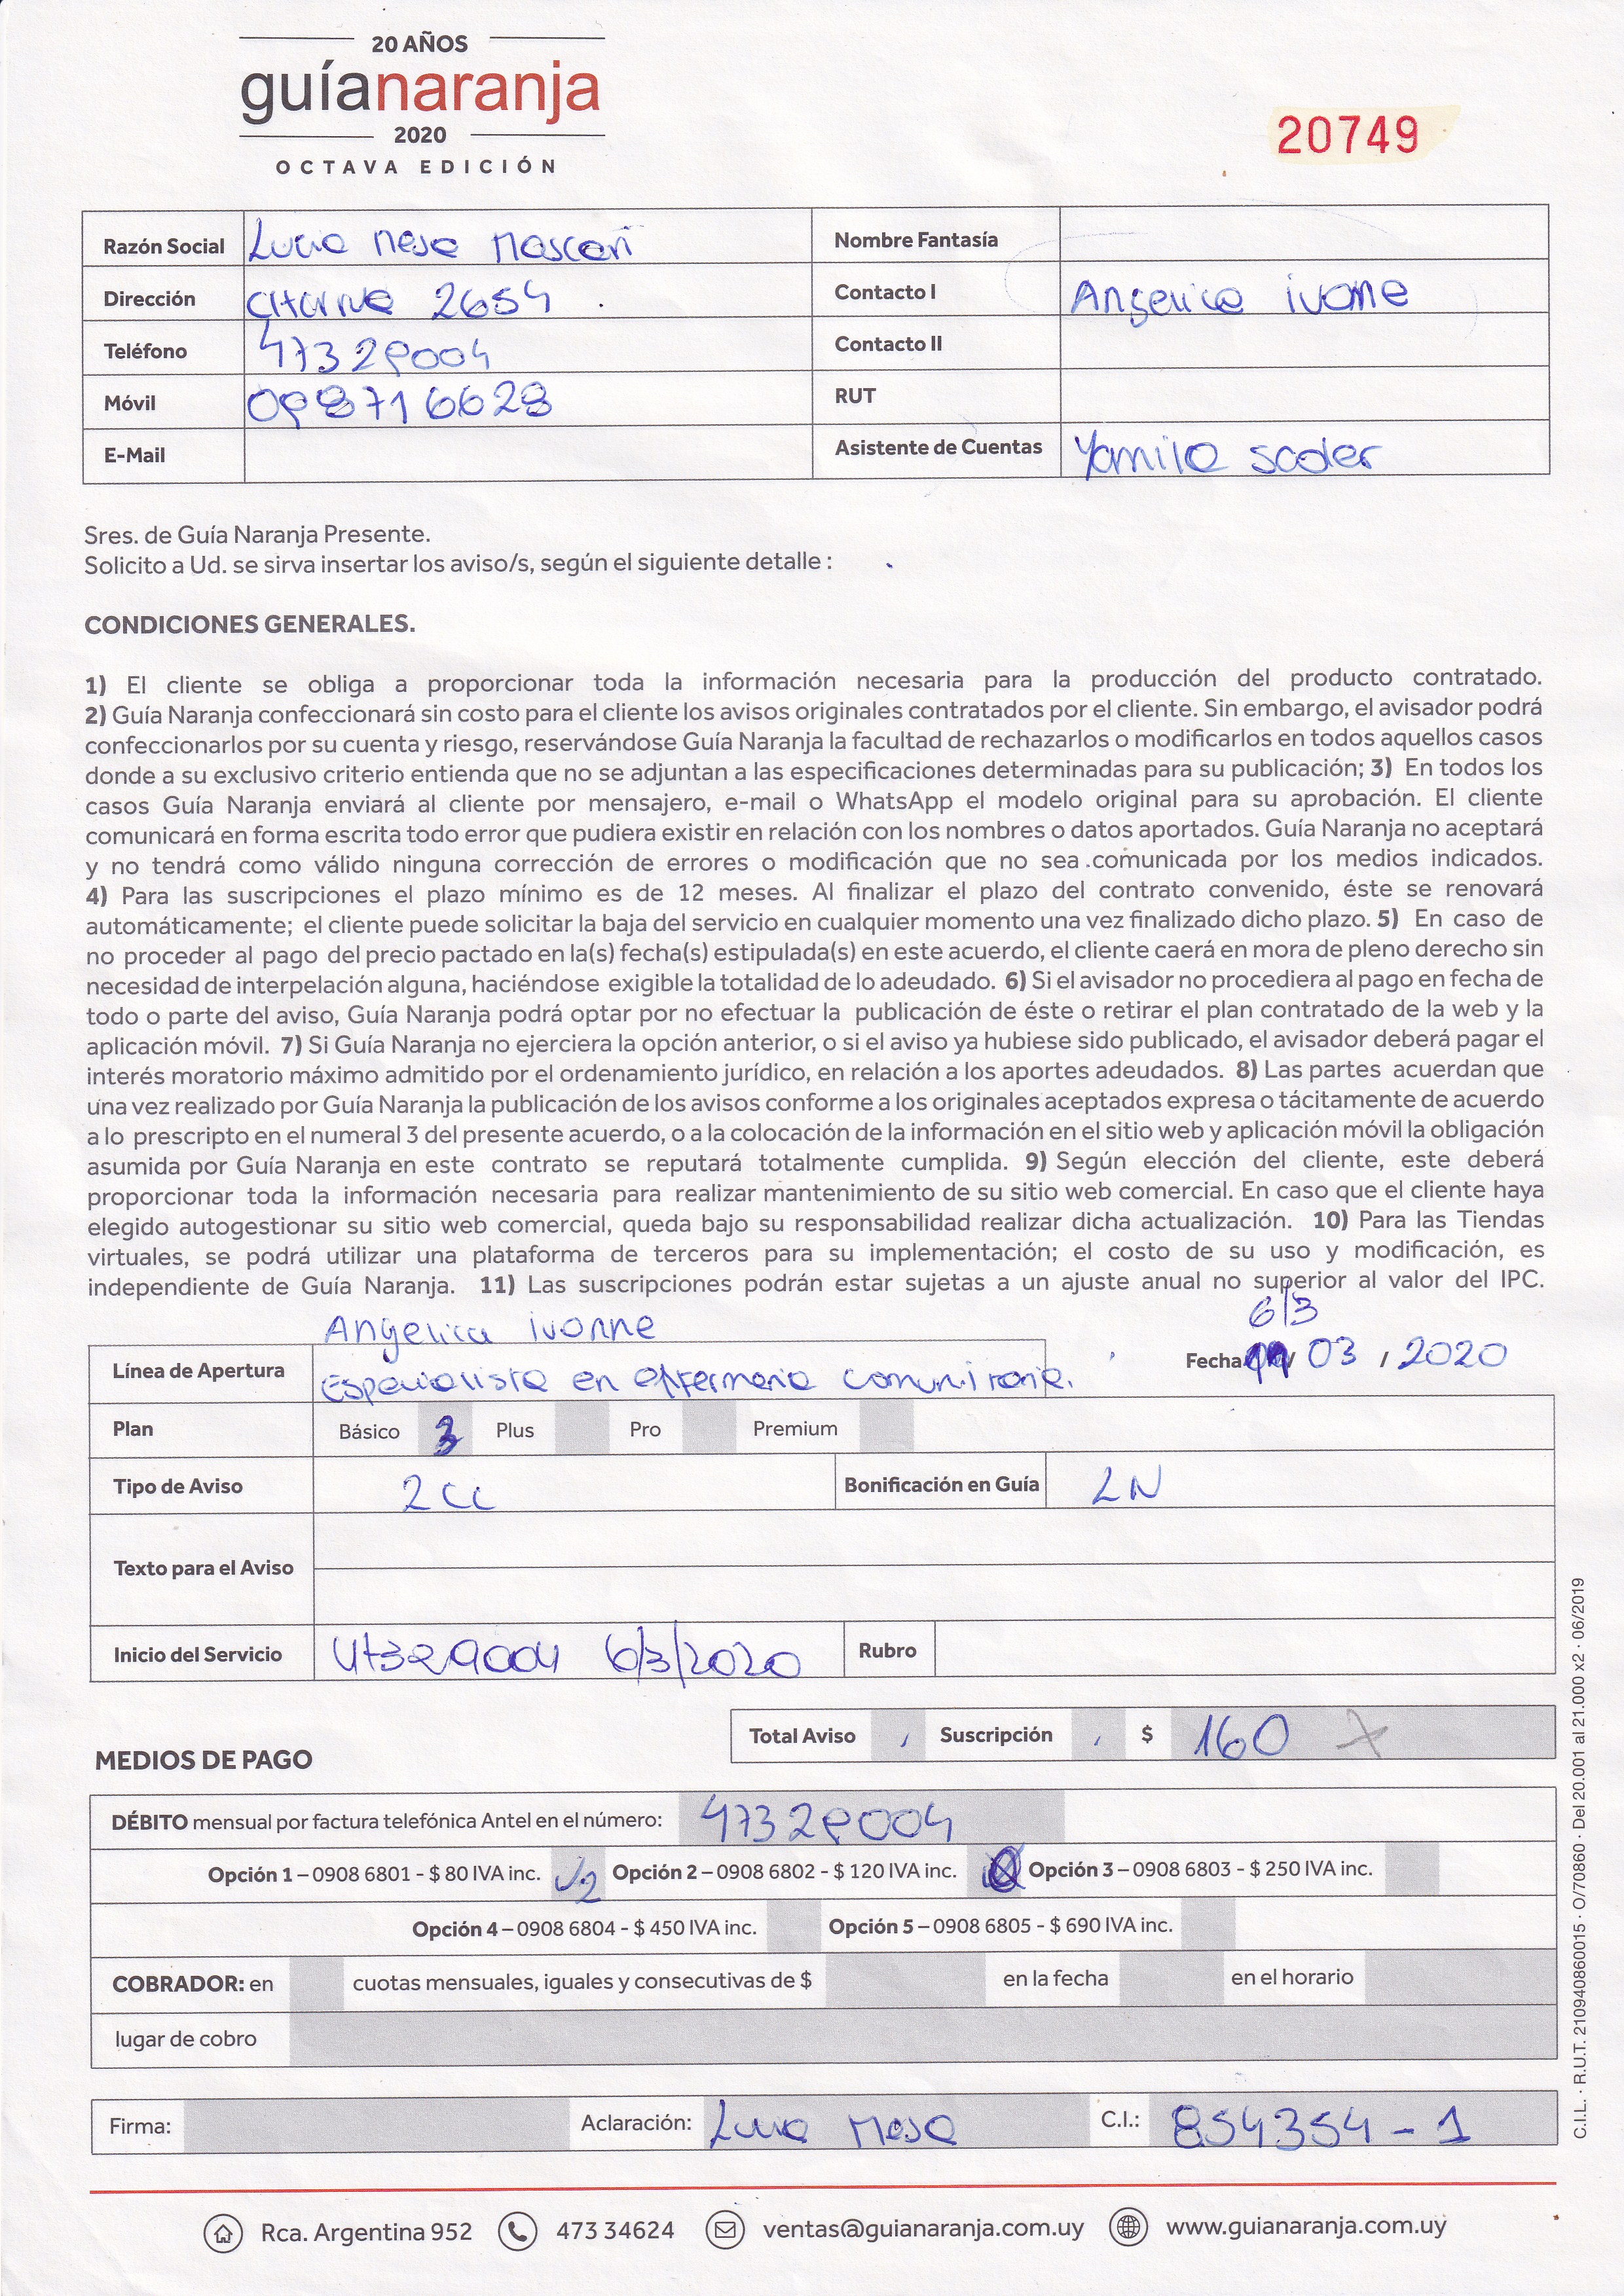 20 AÑOS
guíanaranja
2020
OCTAVA EDICIÓN
20749
Razón Social Lucia Mesa Mascari Nombre Fantasía
Dirección 2654 Contacto I Angelica ivonne
Teléfono 47329004 Contacto II
Móvil 098716628 RUT
E-Mail Asistente de Cuentas Yamila
Sres. de Guía Naranja Presente.
Solicito a Ud. se sirva insertar los aviso/s, según el siguiente detalle :
CONDICIONES GENERALES.
1) El cliente se obliga a proporcionar toda la información necesaria para la producción del producto contratado.
2) Guía Naranja confeccionará sin costo para el cliente los avisos originales contratados por el cliente. Sin embargo, el avisador podrá
confeccionarlos por su cuenta y riesgo, reservándose Guía Naranja la facultad de rechazarlos o modificarlos en todos aquellos casos
donde a su exclusivo criterio entienda que no se adjuntan a las especificaciones determinadas para su publicación; 3) En todos los
casos Guía Naranja enviará al cliente por mensajero, e-mail o WhatsApp el modelo original para su aprobación. El cliente
comunicará en forma escrita todo error que pudiera existir en relación con los nombres o datos aportados. Guía Naranja no aceptará
y no tendrá como válido ninguna corrección de errores o modificación que no sea comunicada por los medios indicados.
4) Para las suscripciones el plazo mínimo es de 12 meses. Al finalizar el plazo del contrato convenido, éste se renovará
automáticamente; el cliente puede solicitar la baja del servicio en cualquier momento una vez finalizado dicho plazo. 5) En caso de
no proceder al pago del precio pactado en la(s) fecha(s) estipulada(s) en este acuerdo, el cliente caerá en mora de pleno derecho sin
necesidad de interpelación alguna, haciéndose exigible la totalidad de lo adeudado. 6) Si el avisador no procediera al pago en fecha de
todo o parte del aviso, Guía Naranja podrá optar por no efectuar la publicación de éste o retirar el plan contratado de la web y la
aplicación móvil. 7) Si Guía Naranja no ejerciera la opción anterior, o si el aviso ya hubiese sido publicado, el avisador deberá pagar el
interés moratorio máximo admitido por el ordenamiento jurídico, en relación a los aportes adeudados. 8) Las partes acuerdan que
una vez realizado por Guía Naranja la publicación de los avisos conforme a los originales aceptados expresa o tácitamente de acuerdo
a lo prescripto en el numeral 3 del presente acuerdo, o a la colocación de la información en el sitio web y aplicación móvil la obligación
asumida por Guía Naranja en este contrato se reputará totalmente cumplida. 9) Según elección del cliente, este deberá
proporcionar toda la información necesaria para realizar mantenimiento de su sitio web comercial. En caso que el cliente haya
elegido autogestionar su sitio web comercial, queda bajo su responsabilidad realizar dicha actualización. 10) Para las Tiendas
virtuales, se podrá utilizar una plataforma de terceros para su implementación; el costo de su uso y modificación, es
independiente de Guía Naranja. 11) Las suscripciones podrán estar sujetas a un ajuste anual no superior al valor del IPC.
Angelica ivonne 6/3
Línea de Apertura Especialista en enfermeria comunitaria. Fecha / 03 / 2020
Plan Básico 3 Plus Pro Premium
Tipo de Aviso 2CC Bonificación en Guía LN
Texto para el Aviso
Inicio del Servicio 47329004 6/3/2020 Rubro
Total Aviso Suscripción $ 160
MEDIOS DE PAGO
DÉBITO mensual por factura telefónica Antel en el número: 47329004
Opción 1 – 0908 6801 - $ 80 IVA inc. 2 Opción 2 – 0908 6802 - $ 120 IVA inc. Opción 3 – 0908 6803 - $ 250 IVA inc.
Opción 4 – 0908 6804 - $ 450 IVA inc. Opción 5 – 0908 6805 - $ 690 IVA inc.
COBRADOR: en cuotas mensuales, iguales y consecutivas de $ en la fecha en el horario
lugar de cobro
Firma: Aclaración: Lucia Mesa C.I.: 854354 - 1
Rca. Argentina 952 473 34624 ventas@guianaranja.com.uy www.guianaranja.com.uy
C.I.L. · R.U.T. 210940860015 · O/70860 · Del 20.001 al 21.000 x2 · 06/2019